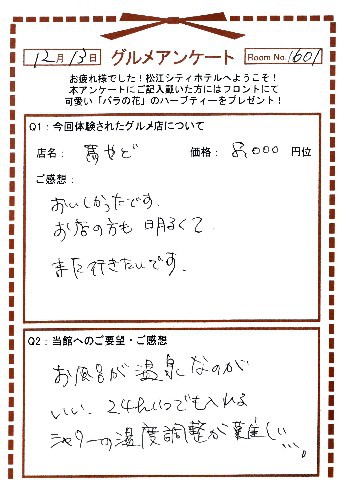 12月13日 グルメアンケート Room No. 1601
お疲れ様でした!松江シティホテルへようこそ!
本アンケートにご記入戴いた方にはフロントにて
可愛い「バラの花」のハーブティーをプレゼント!
Q1:今回体験されたグルメ店について
店名: やど 価格: 8,000 円位
ご感想:
おいしかったです。
お店の方も明るくて
また行きたいです。
Q2:当館へのご要望・ご感想
お風呂が温泉なのが
いい。24hいつでも入れる
シャワーの温度調整が難しい…。